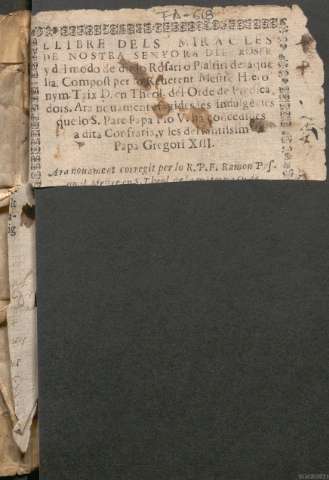 FA-618
LLIBRE DELS MIRACLES
DE NOSTRA SENYORA DEL ROSER
y del modo de dir lo Rosari o Psaltiri de aque
lla, Compost per lo Reuerent Mestre Hiero
nym Taix D. en Theol. del Orde de Predica
dors. Ara nouament añadides les Indulgecies
que lo S. Pare Papa Pio V. ha concedides
a dita Confraria, y les del Santissim
Papa Gregori XIII.
Ara nouament corregit per lo R. P. F. Ramon Pas-
Mestre en S. Theol.